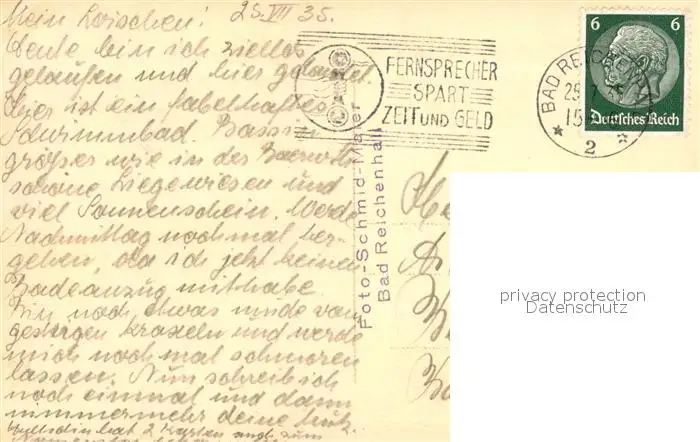 Mein Loischen! 25.VII 35.
Heute bin ich ziellos
gelaufen und hier gelandet.
Hier ist ein fabelhaftes
Schwimmbad. Bassin
größer wie in der
schöne Liegewiesen und
viel Sonnenschein. Werde
Nachmittag nochmal her-
gehen, da ich jetzt keinen
Badeanzug mithabe.
Bin noch etwas müde vom
gestrigen Kraxeln und werde
mich noch mal schmoren
lassen. Nun schreib ich
noch einmal und dann
nimmermehr deine
hat 2 Karten auch zum
FERNSPRECHER
SPART
ZEIT UND GELD
BAD REICHENHALL
2
6 6
Deutsches Reich
Foto-Schmid-Maier
Bad Reichenhall
privacy protection
Datenschutz